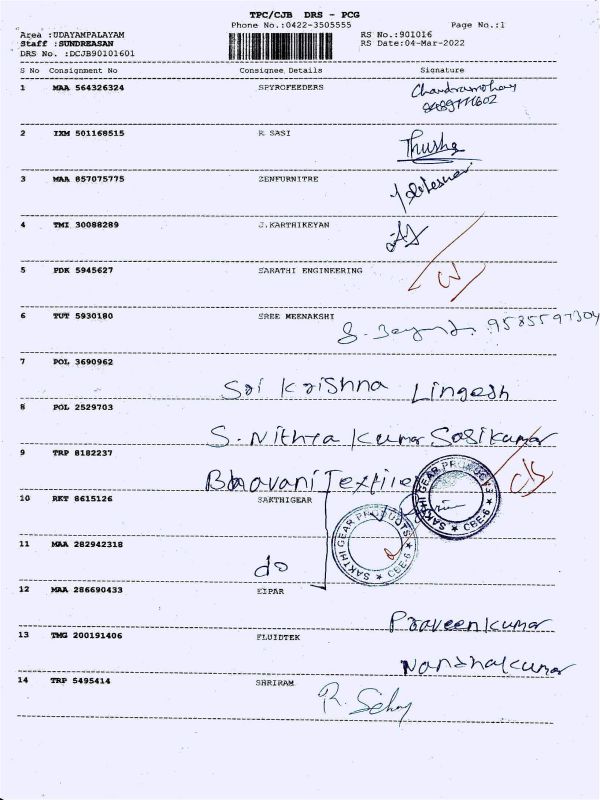 TPC/CJB DRS - PCG
Phone No.:0422-3505555 Page No.:1
Area :UDAYAMPALAYAM RS No.:901016
Staff :SUNDREASAN RS Date:04-Mar-2022
DRS No. :DCJB90101601
S No Consignment No Consignee Details Signature
1 MAA 564326324 SPYROFEEDERS Chandramohan
2 IXM 501168515 R SASI Thusha
3 MAA 857075775 ZENFURNITRE
4 TMI 30088289 J.KARTHIKEYAN
5 PDK 5945627 SARATHI ENGINEERING
6 TUT 5930180 SREE MEENAKSHI
9585597304
7 POL 3690962
Sri Krishna Lingesh
8 POL 2529703
S. Nithya Kumar Sasikumar
9 TRP 8182237
Bhavani Textile
10 RKT 8615126 SAKTHIGEAR
SAKTHI GEAR PRODUCTS ★ CBE-6 ★
SAKTHI GEAR PRODUCTS ★ CBE-6 ★
11 MAA 282942318
do
12 MAA 286690433 EIPAR
Praveenkumar
13 TMG 200191406 FLUIDTEK
Nandhakumar
14 TRP 5495414 SHRIRAM